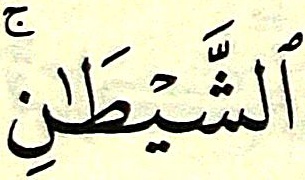 ٱلشَّيْطَٰنِۚ